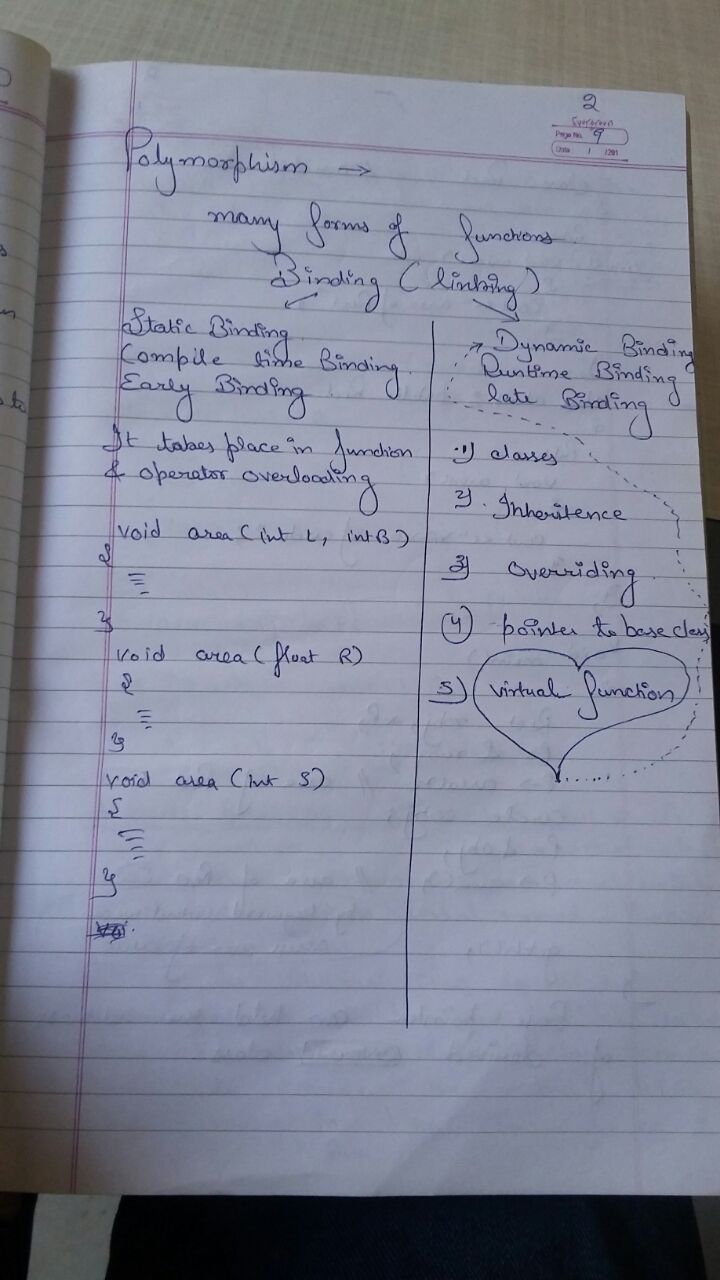 2
Evergreen
Page No. 9
Date / /201
Polymorphism →
many forms of functions
Binding (linking)
Static Binding
Compile time Binding
Early Binding
It takes place in function
& operator overloading
void area (int L, int B)
{
}
void area (float R)
{
}
void area (int S)
{
}
→ Dynamic Binding
Runtime Binding
late Binding
1) classes
2) Inheritence
3) overriding
4) pointer to base class
5) virtual function